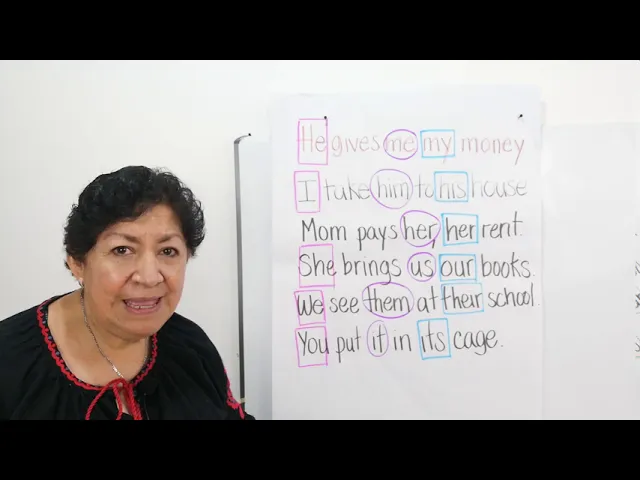 He gives me my money
I take him to his house
Mom pays her her rent.
She brings us our books.
We see them at their school.
You put it in its cage.